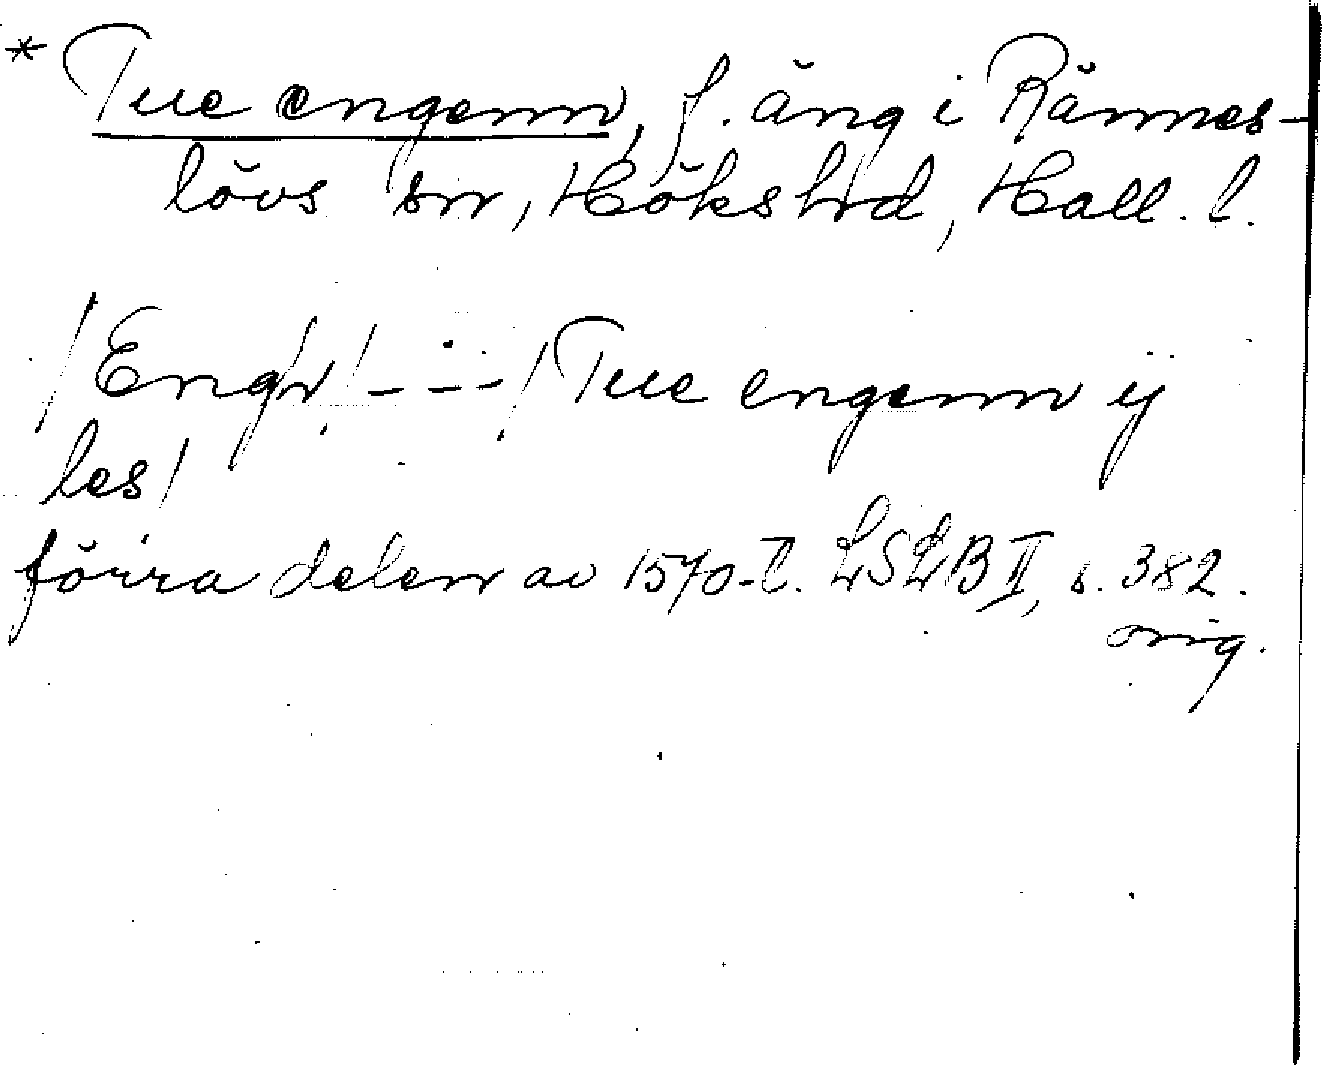 * Tue engenn, f. äng i Rännes-
lövs sn, Höks hrd, Hall. l.
/Eng/n/ --- / Tue engenn ij
les/
förra delen av 1570-t. LSLB II, s. 382.
orig.